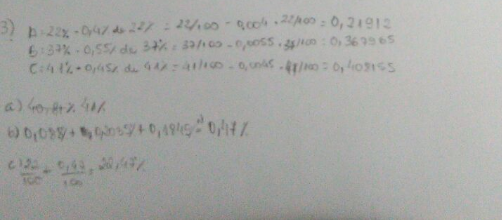 3) A=22% - 0,4% de 22% = 22/100 - 0,004 . 22/100 = 0,21912
B=37% - 0,55% de 37% = 37/100 - 0,0055 . 37/100 = 0,367965
C=41% - 0,45% de 41% = 41/100 - 0,0045 . 41/100 = 0,408155
a) 41%
b) 0,088% + 0,2035% + 0,1845% = 0,47%
c) 22/100 + 0,47/100 = 22,47%